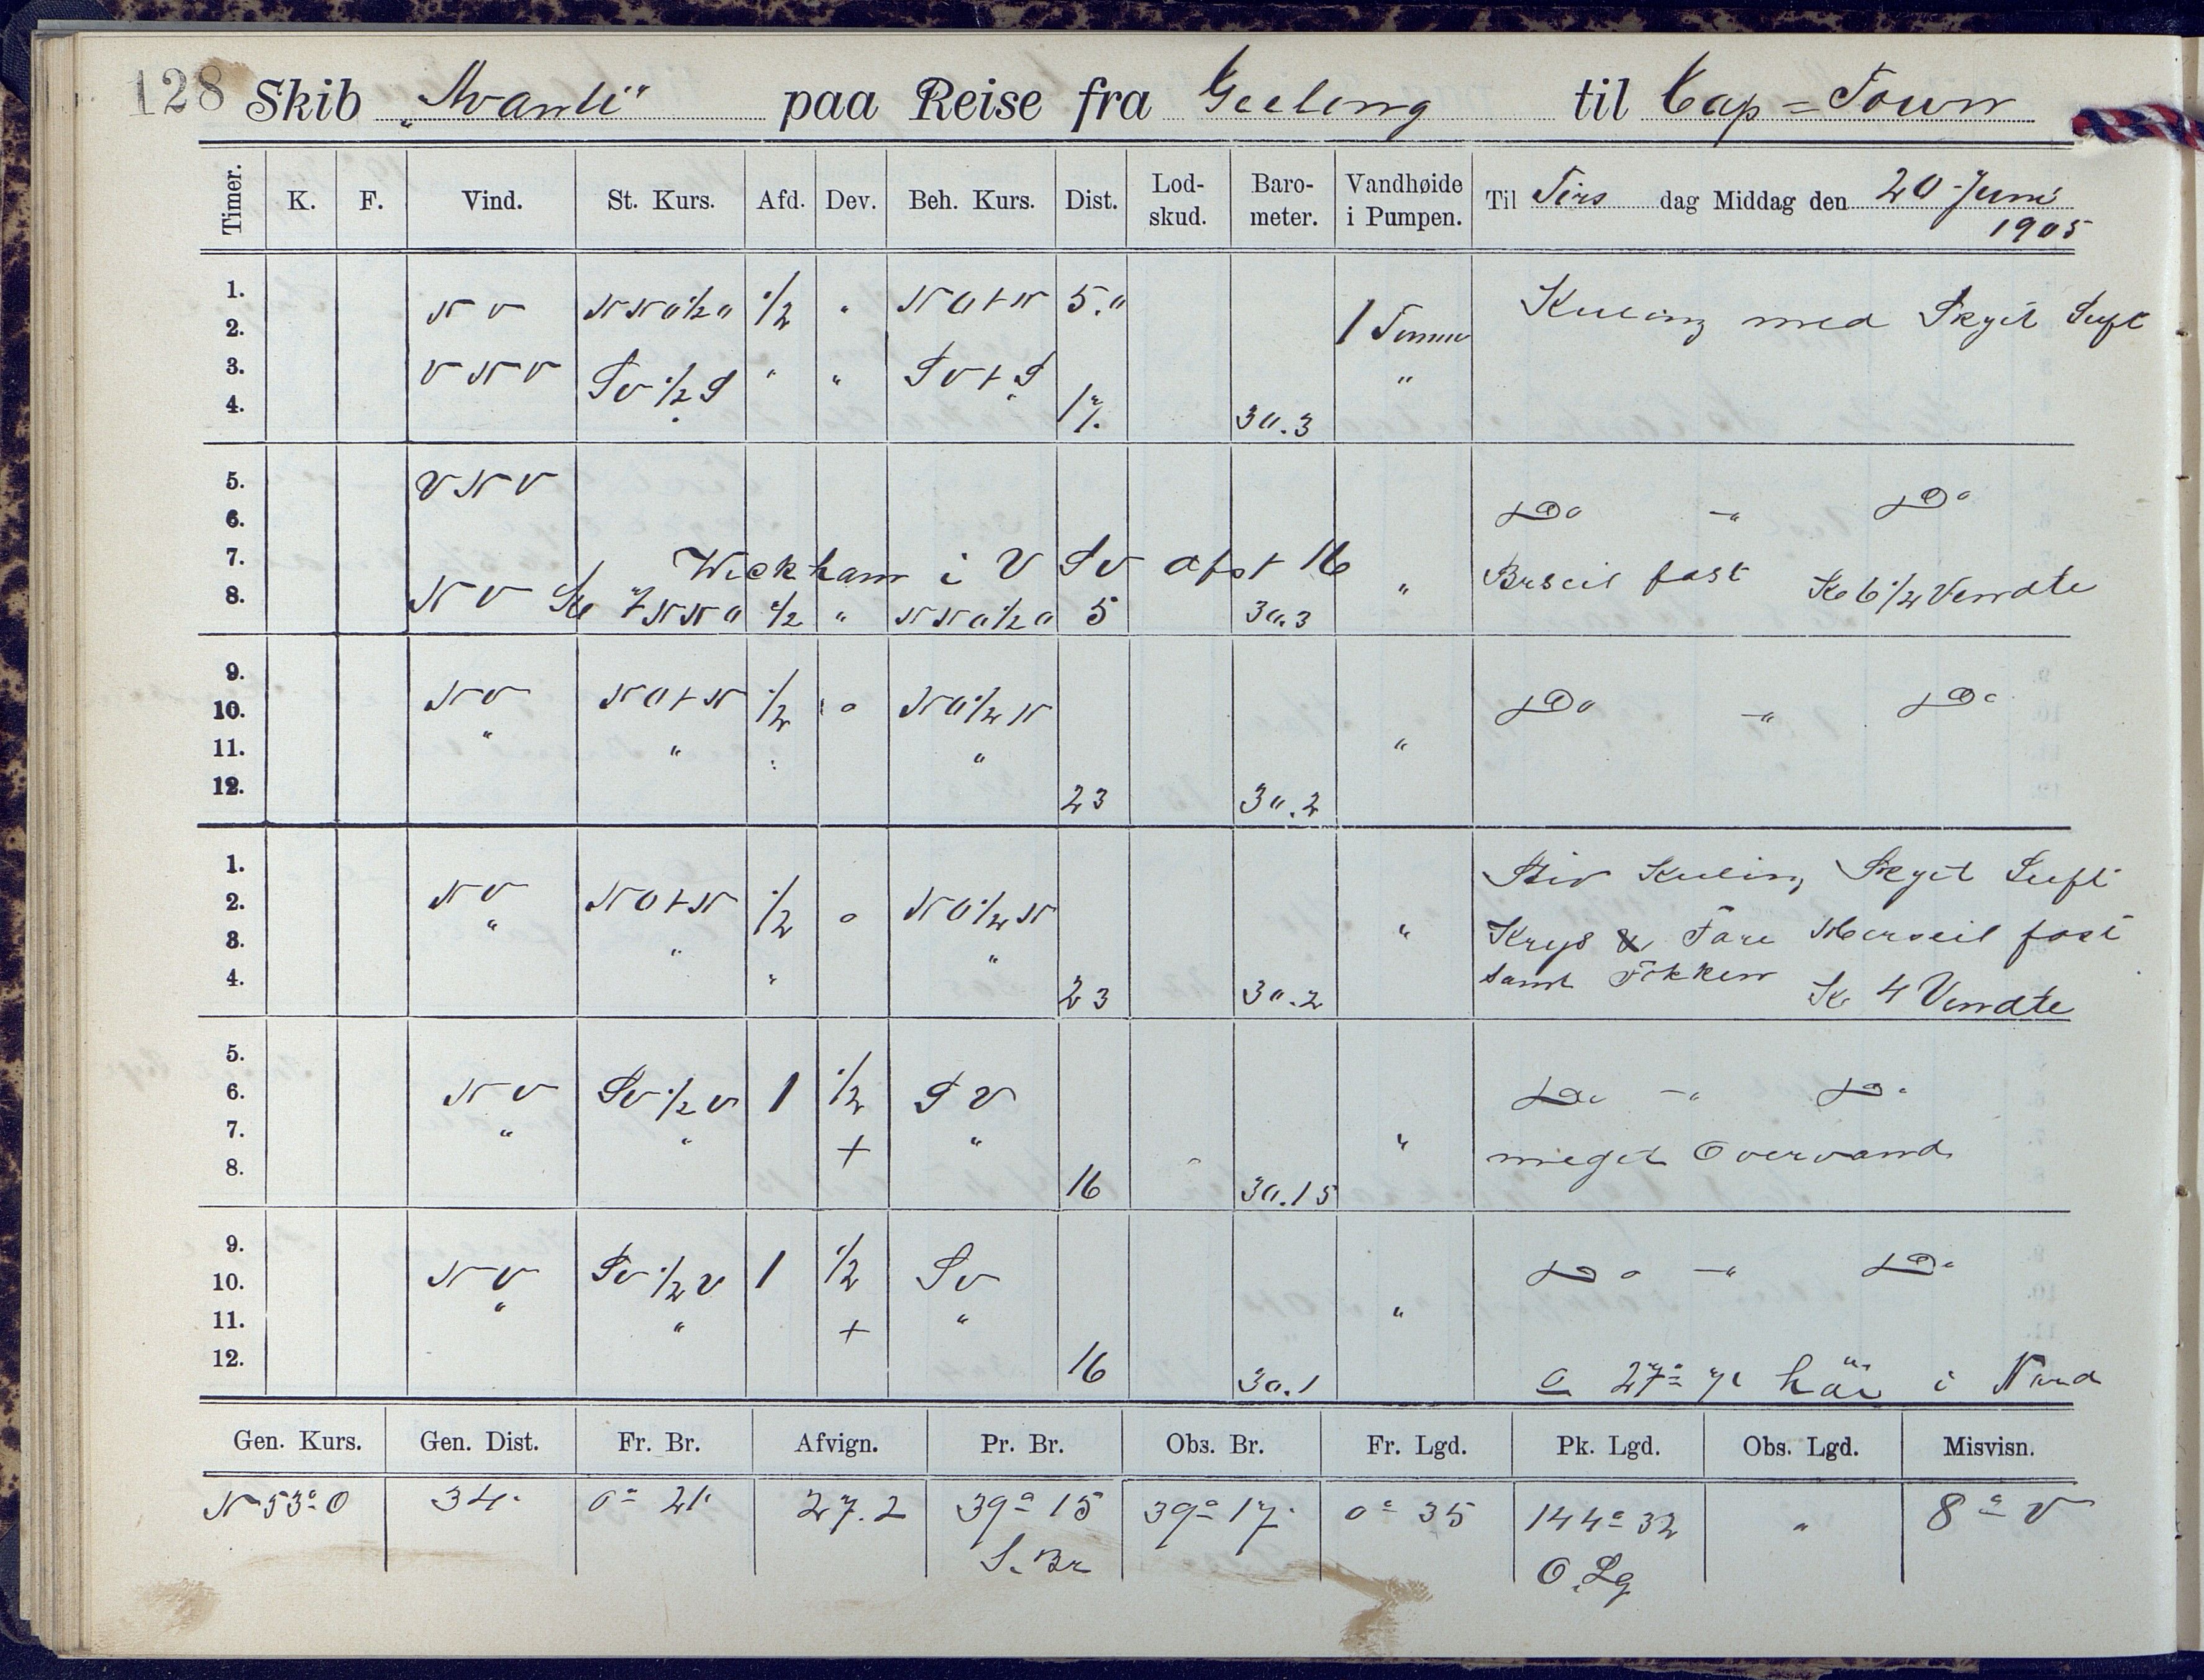 128 Skib „Avanti" paa Reise fra Geelong til Cap=Town
Timer. K. F. Vind. St. Kurs. Afd. Dev. Beh. Kurs. Dist. Lod-skud. Baro-meter. Vandhøide i Pumpen. Til Tirs dag Middag den 20 Juni 1905
1. NV NNO½O ½ " NOtN 5." 1 Tomme Kuling med Skyet Luft
2.
3. VNV SV½S " " SVtS "
4. 17. 30.3
5. VNV
6. Do -"- Do
7. Wickham i VSV afst 16 " Brseil fast Kl 6½ Vendte
8. NV Kl 7 NNO ½ " NNO½O 5 30.3
9.
10. NV NOtN ½ o NO½N Do -"- Do
11. " " " " "
12. 23 30.2
1. Stiv Kuling Skyet Luft
2. NV NOtN ½ o NO½N
3. " " " " Krys & Fore Merseil fast
4. " 23 30.2 samt Fokken Kl 4 Vendte
5.
6. NV SV½V 1 ½ SV Do -"- Do
7. " " + " " meget Overvand
8. 16 30.15
9.
10. NV SV½V 1 ½ SV Do -"- Do
11. " " + " "
12. 16 30.1 i Nord
Gen. Kurs. Gen. Dist. Fr. Br. Afvign. Pr. Br. Obs. Br. Fr. Lgd. Pk. Lgd. Obs. Lgd. Misvisn.
N 53° O 34. 0° 21. 27.2 39° 15 39° 17. 0° 35 144° 32 " 8° V
S. Br O. Lg